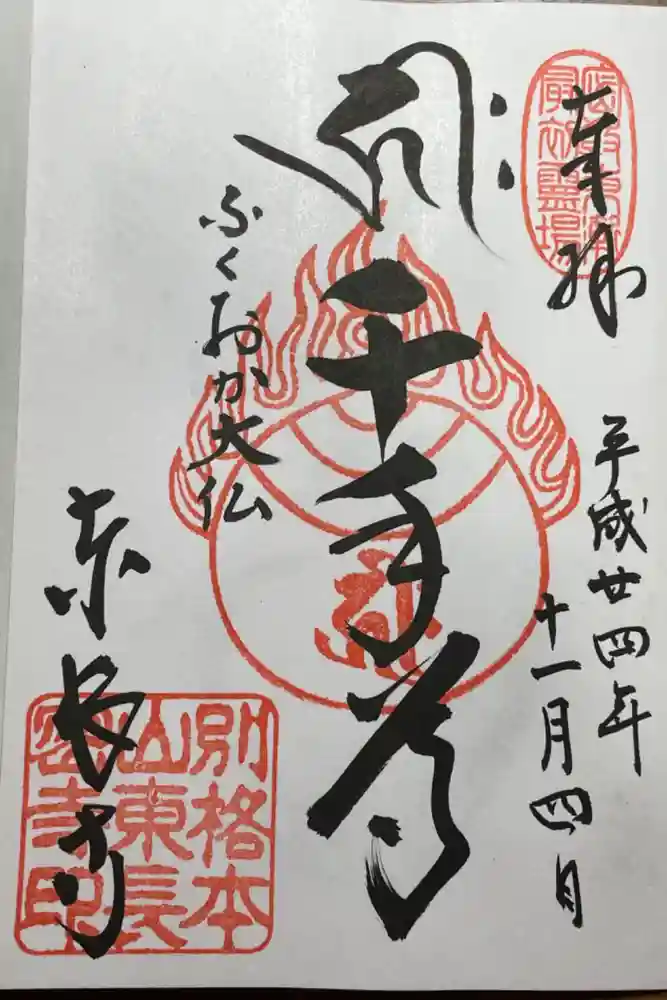 奉拝
密教東漸
最初霊場
平成廿四年
十一月四日
千手尊
ふくおか大仏
東長寺
別格本
山東長
密寺印